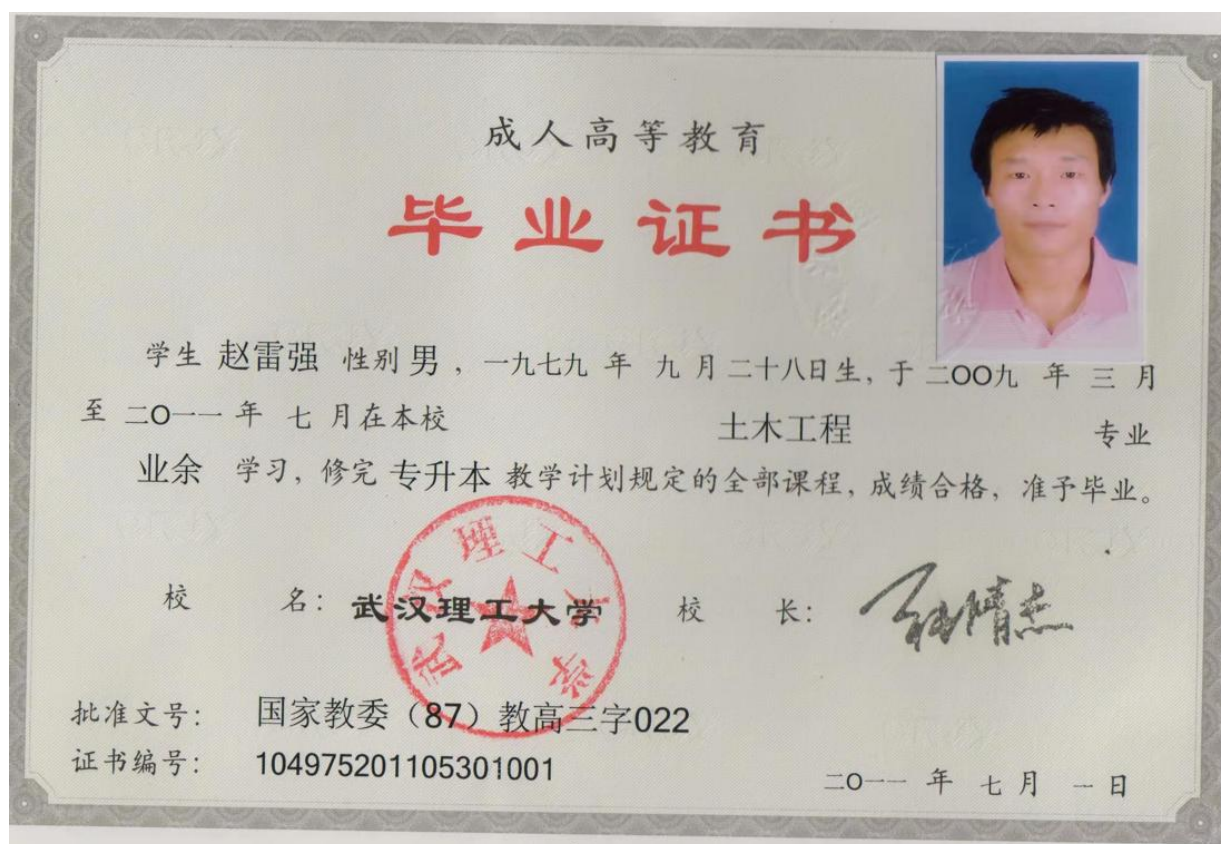 成人高等教育
毕业证书
学生 赵雷强 性别 男，一九七九 年 九 月 二十八日生，于 二OO九 年 三 月
至 二O一一 年 七 月在本校 土木工程 专业
业余 学习，修完 专升本 教学计划规定的全部课程，成绩合格，准予毕业。
校 名：武汉理工大学 校 长：
武汉理工大学
批准文号： 国家教委（87）教高三字022
证书编号： 104975201105301001
二O一一 年 七 月 一 日